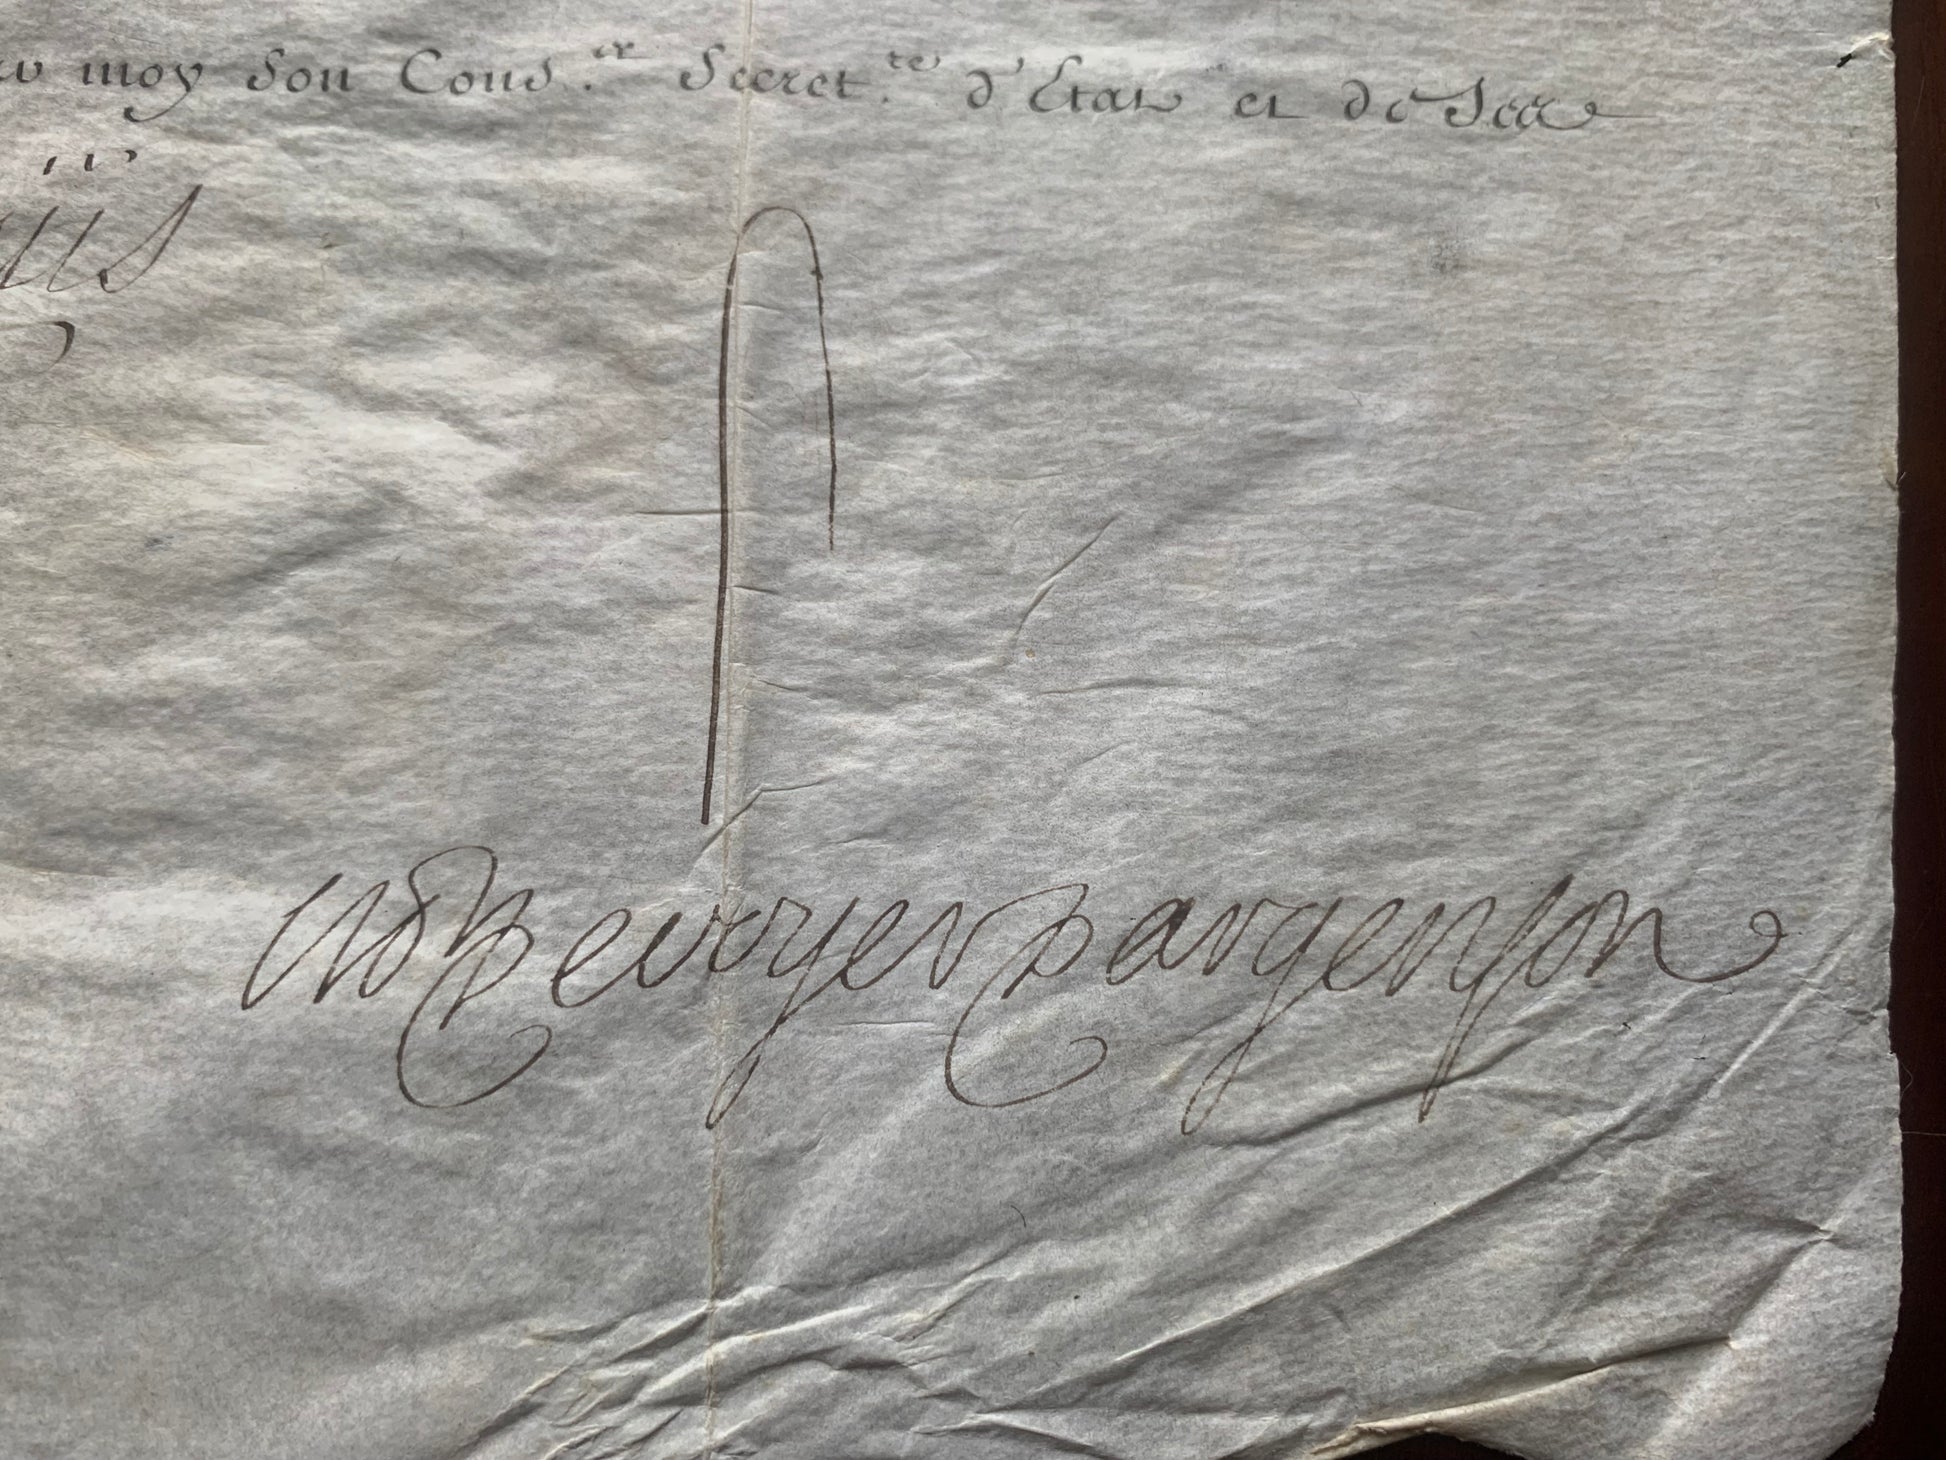 moy son Cons.er Secret.re d'Etat et de Ses
Devoyer Dargenson